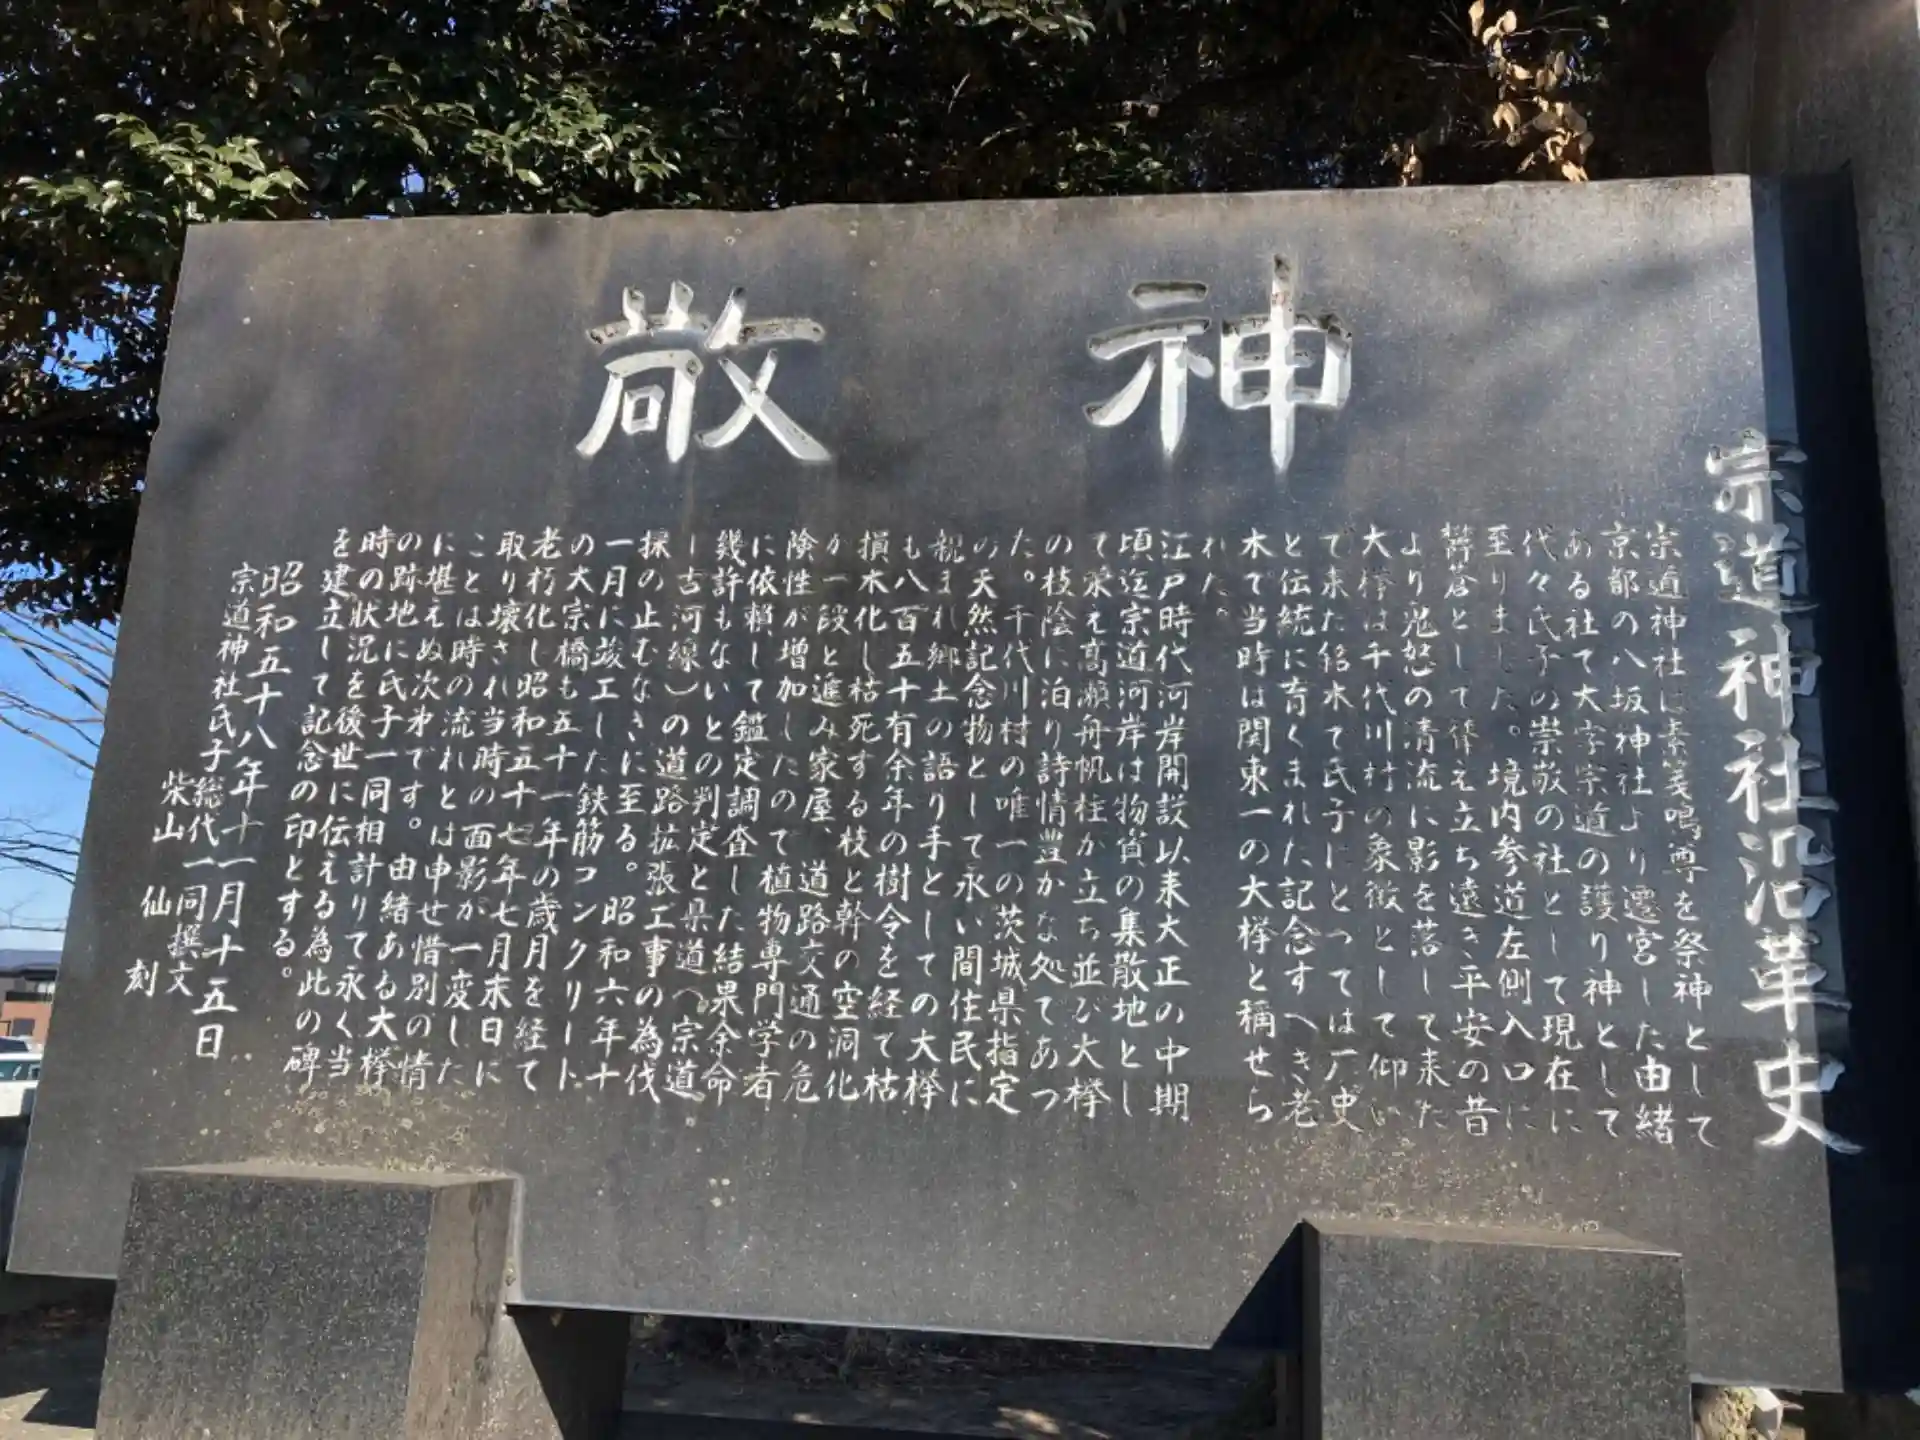 敬神
宗道神社沿革史
宗道神社は素戔嗚尊を祭神として
京都の八坂神社より遷宮した由緒
ある社で大字宗道の護り神として
代々氏子の崇敬の社として現在に
至りました。境内参道左側入口に
欝蒼として聳え立ち遠き平安の昔
より鬼怒の清流に影を落して来た
大欅は千代川村の象徴として仰い
で来た銘木で氏子にとっては歴史
と伝統に育くまれた記念すへき老
木で当時は関東一の大欅と稱せら
れた。
江戸時代河岸開設以来大正の中期
頃迄宗道河岸は物資の集散地とし
て栄え髙瀬舟帆柱か立ち並び大欅
の枝陰に泊り詩情豊かな処てあつ
た。千代川村の唯一の茨城県指定
の天然記念物として永い間住民に
親まれ郷土の語り手としての大欅
も八百五十有余年の樹令を経て枯
損木化し枯死する枝と幹の空洞化
か一段と進み家屋、道路交通の危
険性が増加したのて植物専門学者
に依頼して鑑定調査した結果余命
幾許もないとの判定と県道へ宗道
ー古河線)の道路拡張工事の為伐
採の止むなきに至る。昭和六年十
一月に竣工した鉄筋コンクリート
の大宗橋も五十一年の歳月を経て
老朽化し昭和五十七年七月末日に
取り壊され当時の面影が一変した
ことは時の流れとは申せ惜別の情
に堪えぬ次第です。由緒ある大欅
の跡地に氏子一同相計りて永く当
時の状況を後世に伝える為此の碑
を建立して記念の印とする。
昭和五十八年十一月十五日
宗道神社氏子総代一同撰文
柴山 仙 刻